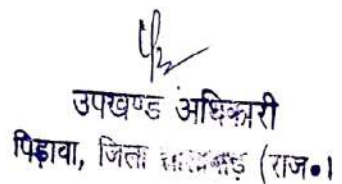 उपखण्ड अधिकारी
पिड़ावा, जिला (राज॰)